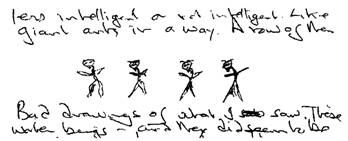 less intelligent a not intelligent. Like
giant ants in a way. A row of them
Bad drawings of what I saw. These
water beings – and they did seem to be